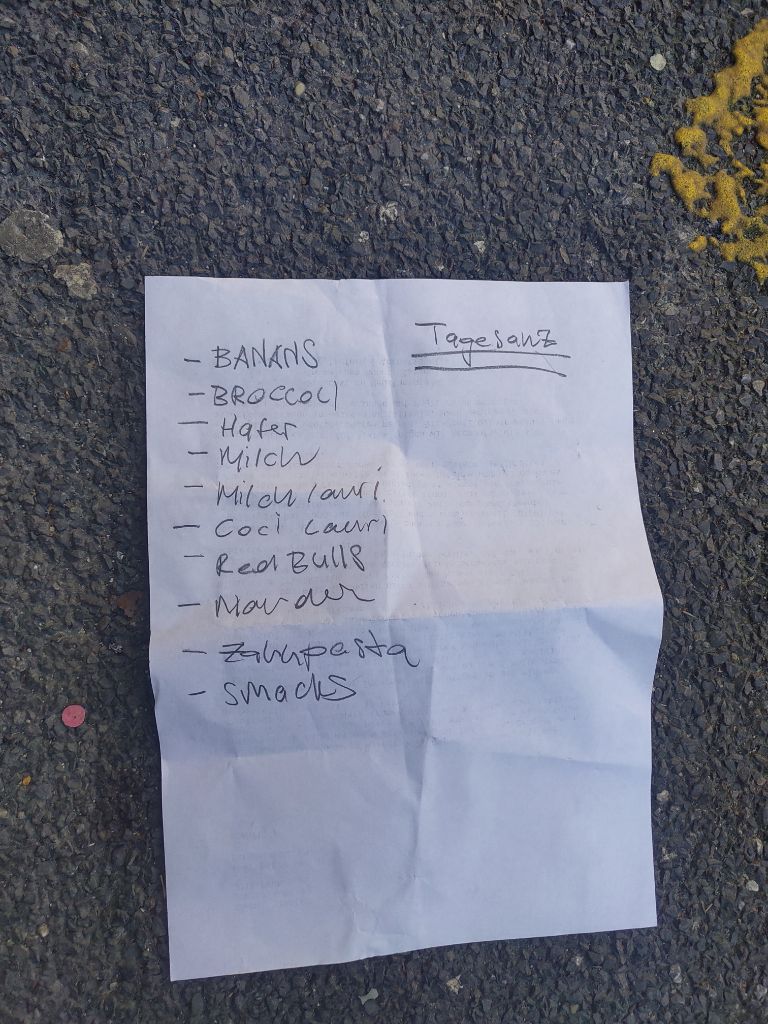 Tagesanz
- BANANS
- BROCCOLI
- Hafer
- Milch
- Milch Lauri
- Coci Lauri
- Red Bulls
- Zahnpasta
- Smacks